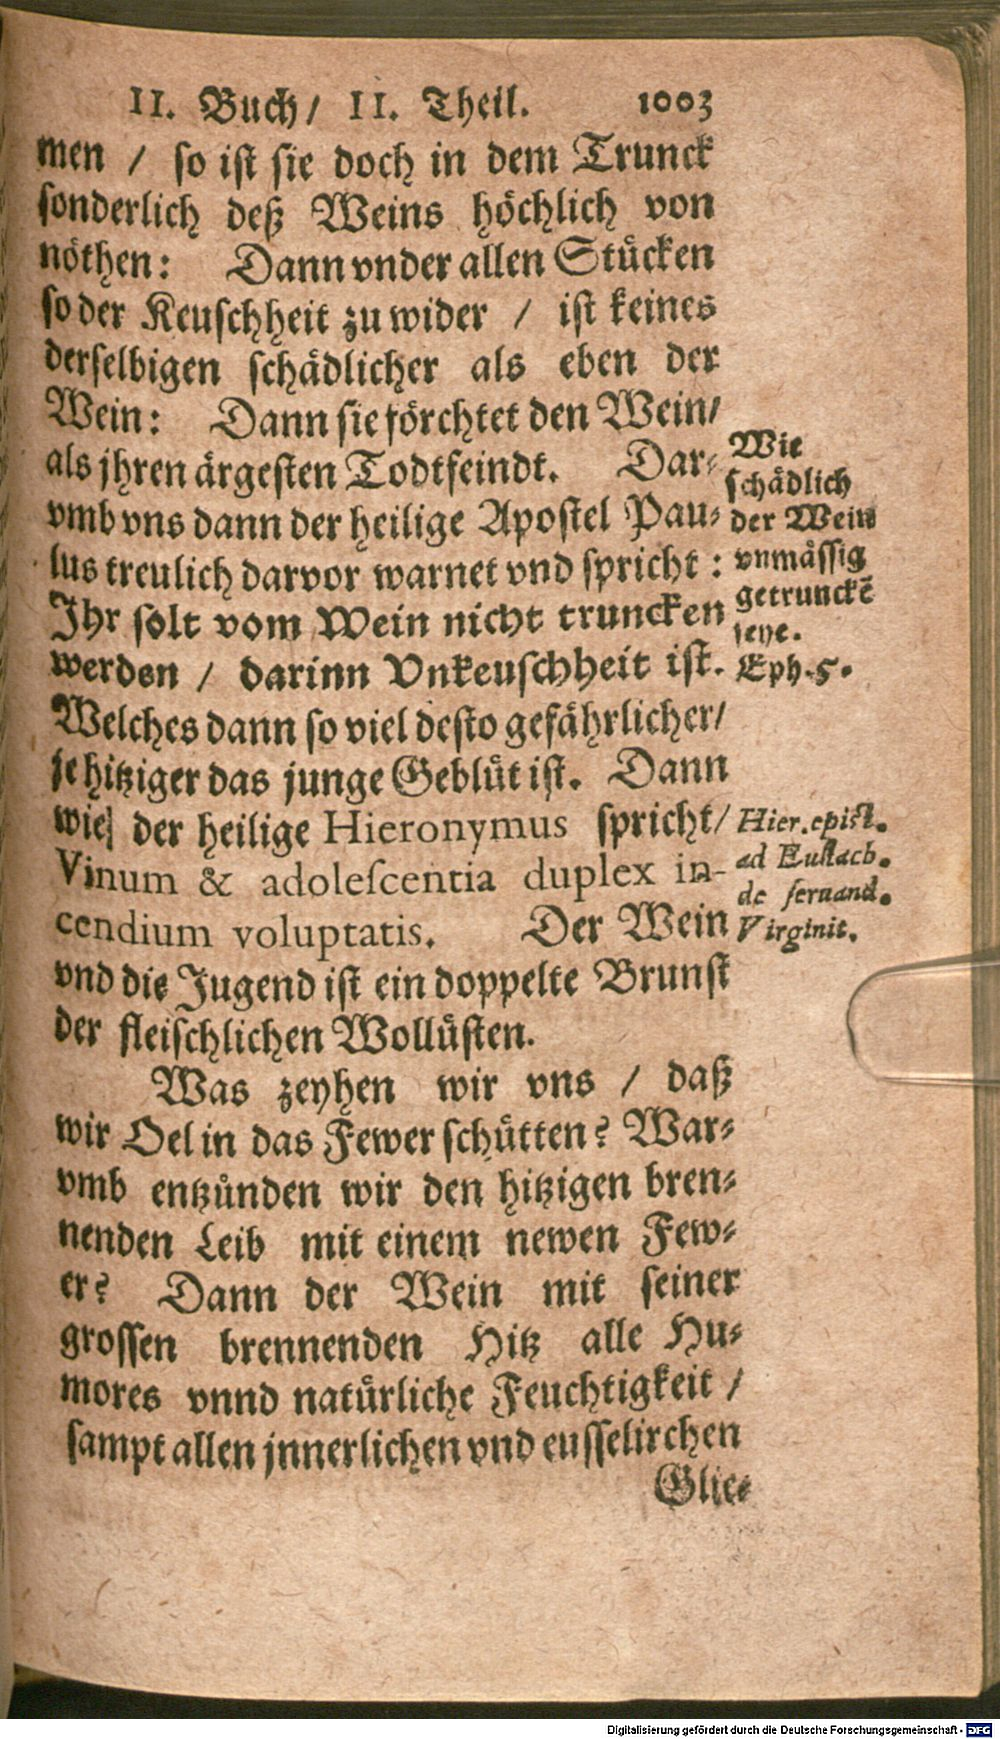 II. Buch/ II. Theil. 1003
men / so ist sie doch in dem Trunck
sonderlich deß Weins höchlich von
nöthen: Dann vnder allen Stücken
so der Keuschheit zu wider / ist keines
derselbigen schädlicher als eben der
Wein: Dann sie förchtet den Wein/
als jhren ärgesten Todtfeindt. Dar-
vmb vns dann der heilige Apostel Pau-
lus treulich darvor warnet vnd spricht:
Ihr solt vom Wein nicht truncken
werden / darinn Vnkeuschheit ist.
Welches dann so viel desto gefährlicher/
je hitziger das junge Geblüt ist. Dann
wie der heilige Hieronymus spricht/
Vinum & adolescentia duplex in-
cendium voluptatis. Der Wein
vnd die Jugend ist ein doppelte Brunst
der fleischlichen Wollüsten.
Was zeyhen wir vns / daß
wir Oel in das Fewer schütten? War-
vmb entzünden wir den hitzigen bren-
nenden Leib mit einem newen Few-
er? Dann der Wein mit seiner
grossen brennenden Hitz alle Hu-
mores vnnd natürliche Feuchtigkeit /
sampt allen jnnerlichen vnd eusselirchen
Glie-
Wie
schädlich
der Wein
vnmässig
getrunckē
seye.
Eph. 5.
Hier. epist.
ad Eustach.
de seruand.
Virginit.
Digitalisierung gefördert durch die Deutsche Forschungsgemeinschaft - DFG